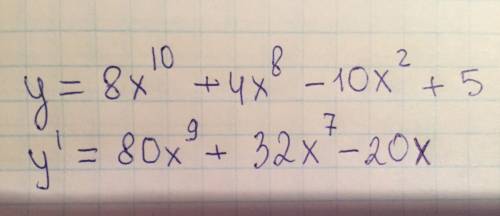 y = 8x¹⁰ + 4x⁸ - 10x² + 5
y' = 80x⁹ + 32x⁷ - 20x